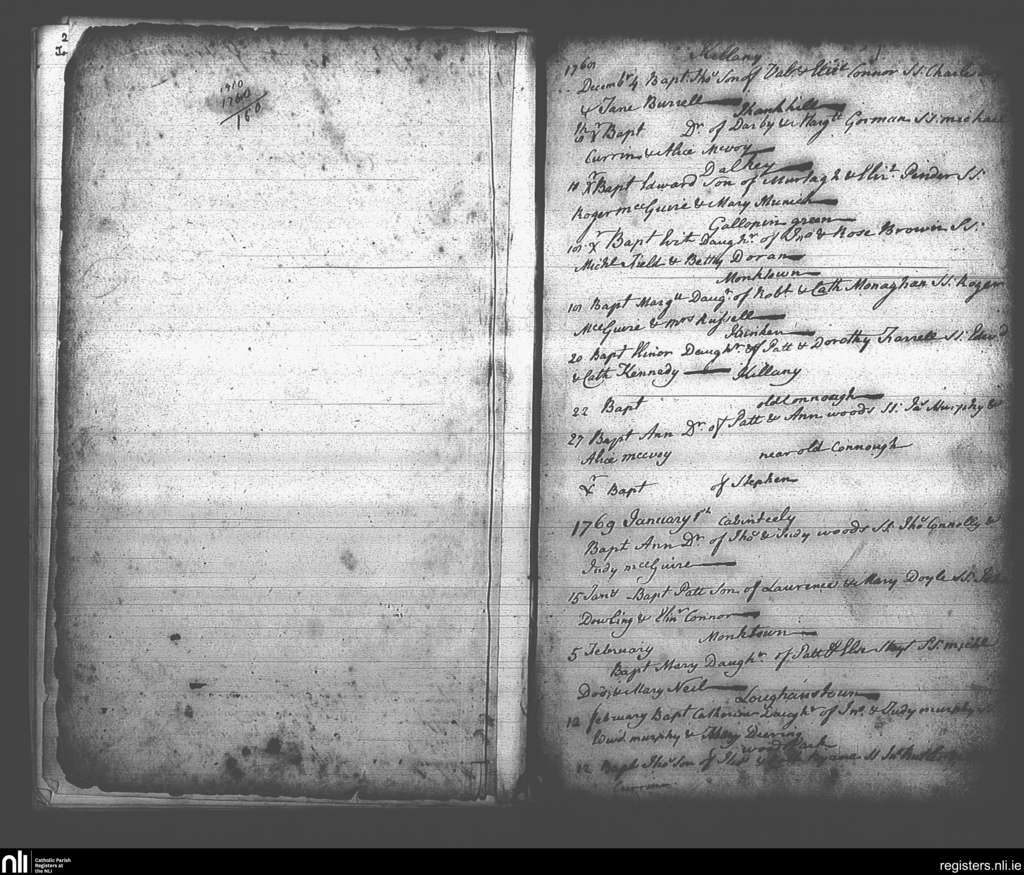 2
1910
1760
150
Killany
1768
Decembr 4 Bapt Thos Son of Val: & Elizt Connor Ss: Charles
& Jane Burrell
Shankhill
Bapt Dr of Darby & Margt Gorman Ss: michael
Currin & Alice Mcvoy
Dalkey
Bapt Edward Son of Murtagh & Elizt Pender Ss:
Roger mcGuire & Mary Munich
Gallopin green
Bapt Daughr of Jno & Rose Brown Ss:
Michl Field & Betty Doran
Monktown
Bapt Margtt Daugr of Robt & Cath Monaghan Ss: Roger
McGuire & mrs Russell
Kinken
20 Bapt Elinor Daughr of Patt & Dorothy Farrell Ss: Edwd
& Cath Kennedy
Killany
22 Bapt
old Connough
27 Bapt Ann Dr of Patt & Ann woods Ss: Jas Murphy &
Alice mccvoy
near old Connough
Bapt of Stephen
1769 January 8th Cabinteely
Bapt Ann Dr of Thos & Judy woods Ss: Thos Connolly &
Judy mcGuire
15 Jany Bapt Patt Son of Laurence & Mary Doyle Ss:
Dowling & Elinr Connor
Monktown
5 February
Bapt Mary Daughr of Patt & Ss: michl
Dod; & Mary Neil
Loughanstown
12 february Bapt Catherine Daughr of Jno & Judy murphy
Edwd murphy & Mary Deering
wood Park
12 Bapt Thos Son of Thos & Ryana Ss
Curran
nli
Catholic Parish
Registers at
the NLI
registers.nli.ie